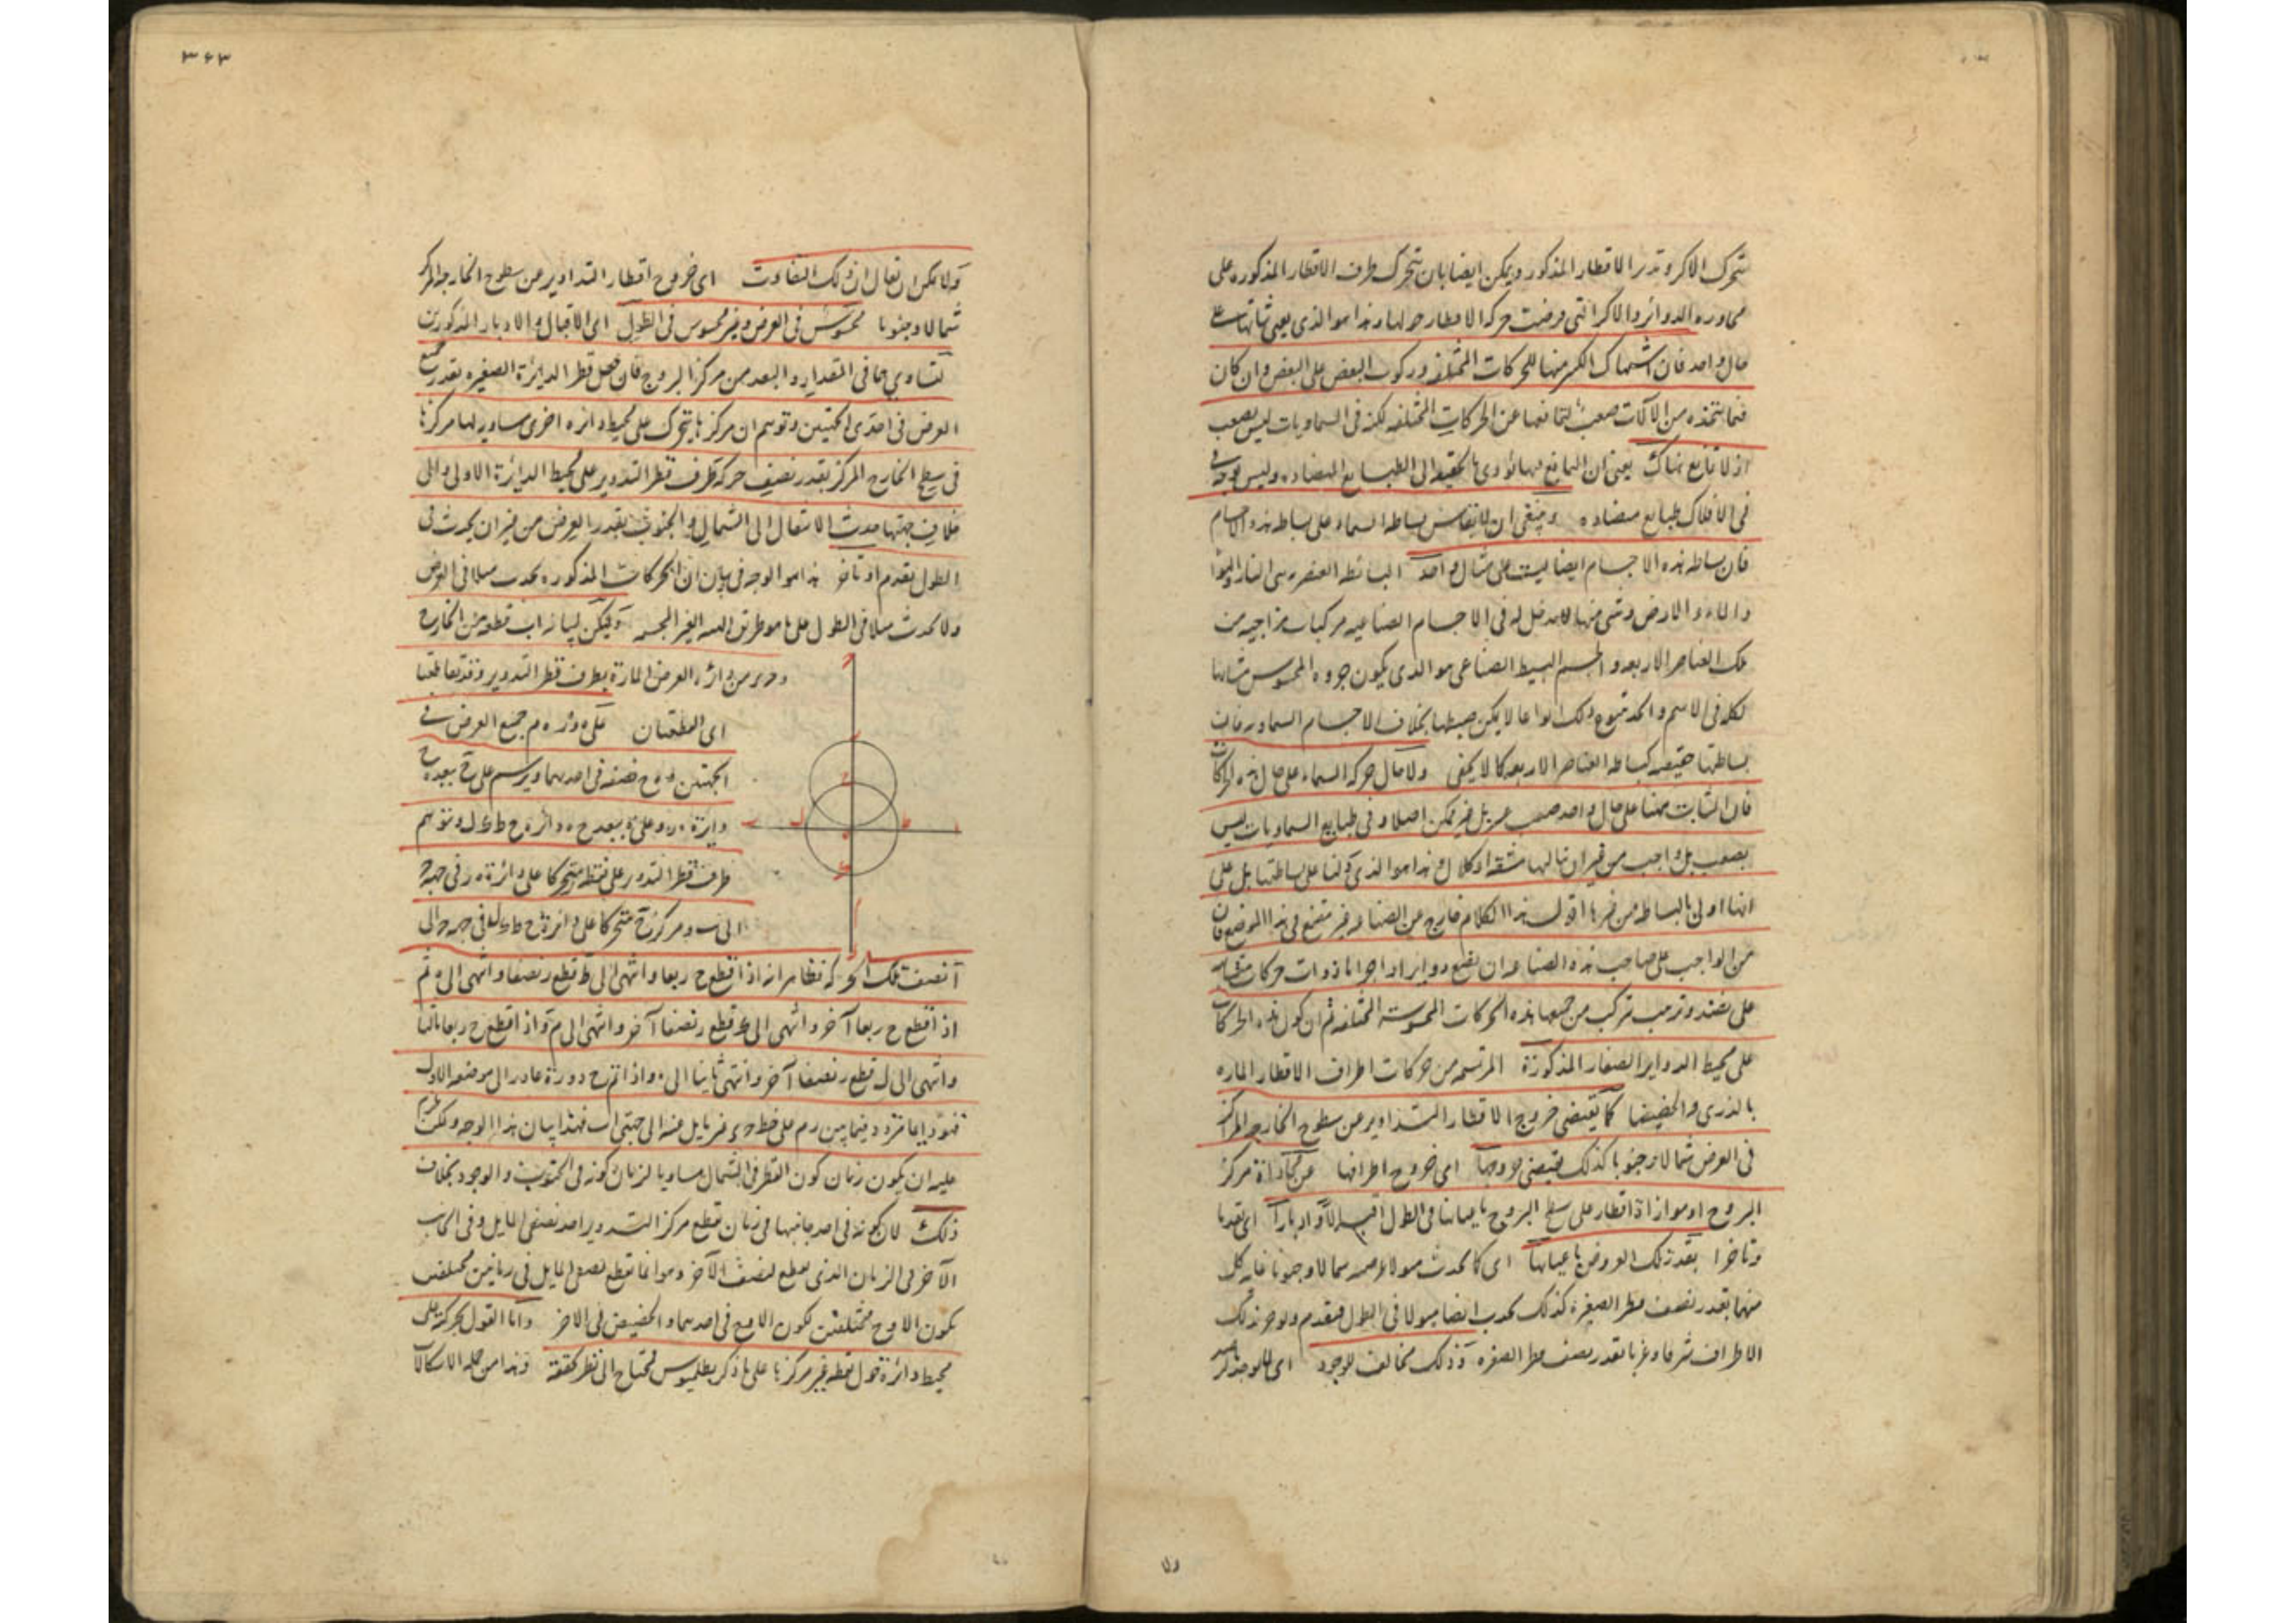 تتحرك الاكر و تدير الاقطار المذكور ويمكن ايضا بان تتحرك طرف الاقطار المذكوره على
محاور هذه الدوائر والاكر التى فرضت حركة الاقطار حولها وهذا هو الذى يعنى ثباتها على
حال واحد فان اشتباك الاكر منها للحركات المختلفة وركوب البعض على البعض وان كان
فيما نتخذه من الآلات صعبا لتمانعها عن الحركات المختلفه لكنه فى السماويات ليس بصعب
اذ لا تمانع هناك يعنى ان المانع ههنا يؤدى بالحقيقة الى الطبايع المتضاده وليس يوجد
فى الافلاك طبايع متضاده وينبغى ان لا يقاس بساطة السماء على بساطة هذه الاجسام
فان بساطة هذه الاجسام ايضا ليست على مثال واحد البسائط العنصريه هى النار والهواء
والماء والارض وشى منها لا مدخل له فى الاجسام الصناعيه مركبات مزاجيه من
تلك العناصر الاربعه والجسم البسيط الصناعى هو الذى يكون جزوه المحسوس مشابها
لكله فى الاسم والحد فتنوع ذلك انواعا لا يمكن ضبطها بخلاف الاجسام السماويه فان
بساطتها حقيقيه كبساطة العناصر الاربعه كما لا يخفى ولا حال حركة السماء على حال هذه الحركات
فان الثبات ههنا على حال واحد صعب عسر بل غير ممكن اصلا و فى طبايع السماويات ليس
بصعب بل واجب من غير ان ينالها مشقة او كلال وهذا هو الذى دلنا على بساطتها بل على
انها اولى بالبساطه من غيرها اقول هذا الكلام خارج عن الصناعه غير مقنع فى هذا الموضع فان
من الواجب على صاحب هذه الصناعه ان يضع دواير او اجراما ذوات حركات متشابهه
على نضد وترتيب تتركب من جميعها هذه الحركات المحسوسة المختلفه ثم ان كون هذه الحركات
على محيط الدواير الصغار المذكورة المرتسمه من حركات اطراف الاقطار الماره
بالذرى والحضيضات كما يقتضى خروج الاقطار التداوير عن سطوح الخارجه المراكز
فى العرض شمالا وجنوبا كذلك يقتضى خروجها اى خروج اطرافها عن محاذاة مركز
البروج او موازاة اقطار على سطح البروج باعيانها فى الطول اقبالا وادبارا اى تقدما
وتاخرا بقدر تلك العروض باعيانها اى كما يحدث ميولا عرضيه شمالا وجنوبا غاية كل
منهما بقدر نصف قطر الصغيره كذلك يحدث ايضا ميولا فى الطول فيتقدم ويتاخر تلك
الاطراف شرقا وغربا بقدر نصف قطر الصغيره وذلك مخالف للوجود
٣۶٣
ولا يمكن ان يقال ان ذلك التفاوت اى خروج اقطار التداوير عن سطوح الخارجه المركز
شمالا وجنوبا محسوس فى العرض وغير محسوس فى الطول اى الاقبال والادبار المذكورين
لتساويهما فى المقدار والبعد من مركز البروج فان جعل قطر الدايرة الصغيره بقدر جميع
العرض فى احدى الجهتين وتوهم ان مركزها يتحرك على محيط دائره اخرى مساويه لها مركزها
فى سطح الخارج المركز بقدر نصف حركة طرف قطر التدوير على محيط الدائرة الاولى والى
خلاف جهتها حدث الانتقال الى الشمال والجنوب بقدر العرض من غير ان يحدث فى
الطول تقدم او تاخر هذا هو الوجه فى بيان ان الحركات المذكوره يحدث ميلا فى العرض
ولا يحدث ميلا فى الطول على ما هو طريق الهيئه الغير المجسمه وليكن لبيانه اب قطعه من الخارج
و ح د من دائرة العرض المارة بطرف قطر التدوير وقد تقاطعتا
اى القطعتان على ه و ر ه م جميع العرض فى
الجهتين و ه ح نصفه فى احدهما ويرسم على ح ببعد ه ح
دايرة ه ر وعلى ه ببعد ح ه دائرة ح ط ك ل ونتوهم
طرف قطر التدوير على نقطة ر متحركا على دائرة ه ر فى جهة
الى ب و مركز ح متحركا على دائرة ح ط ك ل فى جهة ح الى
آ نصف تلك الحركة فظاهر انه اذا قطع ح ربعا وانتهى الى ط قطع ر نصفا وانتهى الى ه ثم
اذ اقطع ح ربعا آخر وانتهى الى ك قطع ر نصفا آخر وانتهى الى م و اذ اقطع ح ربعا ثالثا
وانتهى الى ل قطع ر نصفا آخر وانتهى ثانيا الى ه واذا تم ح دورة عاد ر الى موضعه الاول
فهو دايما متردد فيما بين ر م على خط ح د غير مايل عنه الى جهتى ا ب فهذا بيان هذا الوجه ولكن يلزم
عليه ان يكون زمان كون القطر فى الشمال مساويا لزمان كونه فى الجنوب والوجود بخلاف
ذلك لان كونه فى احد جانبيها فى زمان قطع مركز التدوير احد نصفى المايل وفى الجانب
الآخر فى الزمان الذى يقطع النصف الآخر وهو انما يقطع نصفى المايل فى زمانين مختلفين
يكون الاوج مختلفين لكون الاوج فى احدهما والحضيض فى الاخر واما القول بحركته على
محيط دائرة حول نقطه غير مركزها على ما ذكر بطلميوس فمحتاج الى نظر كحققه وهذا من جمله الاشكالات